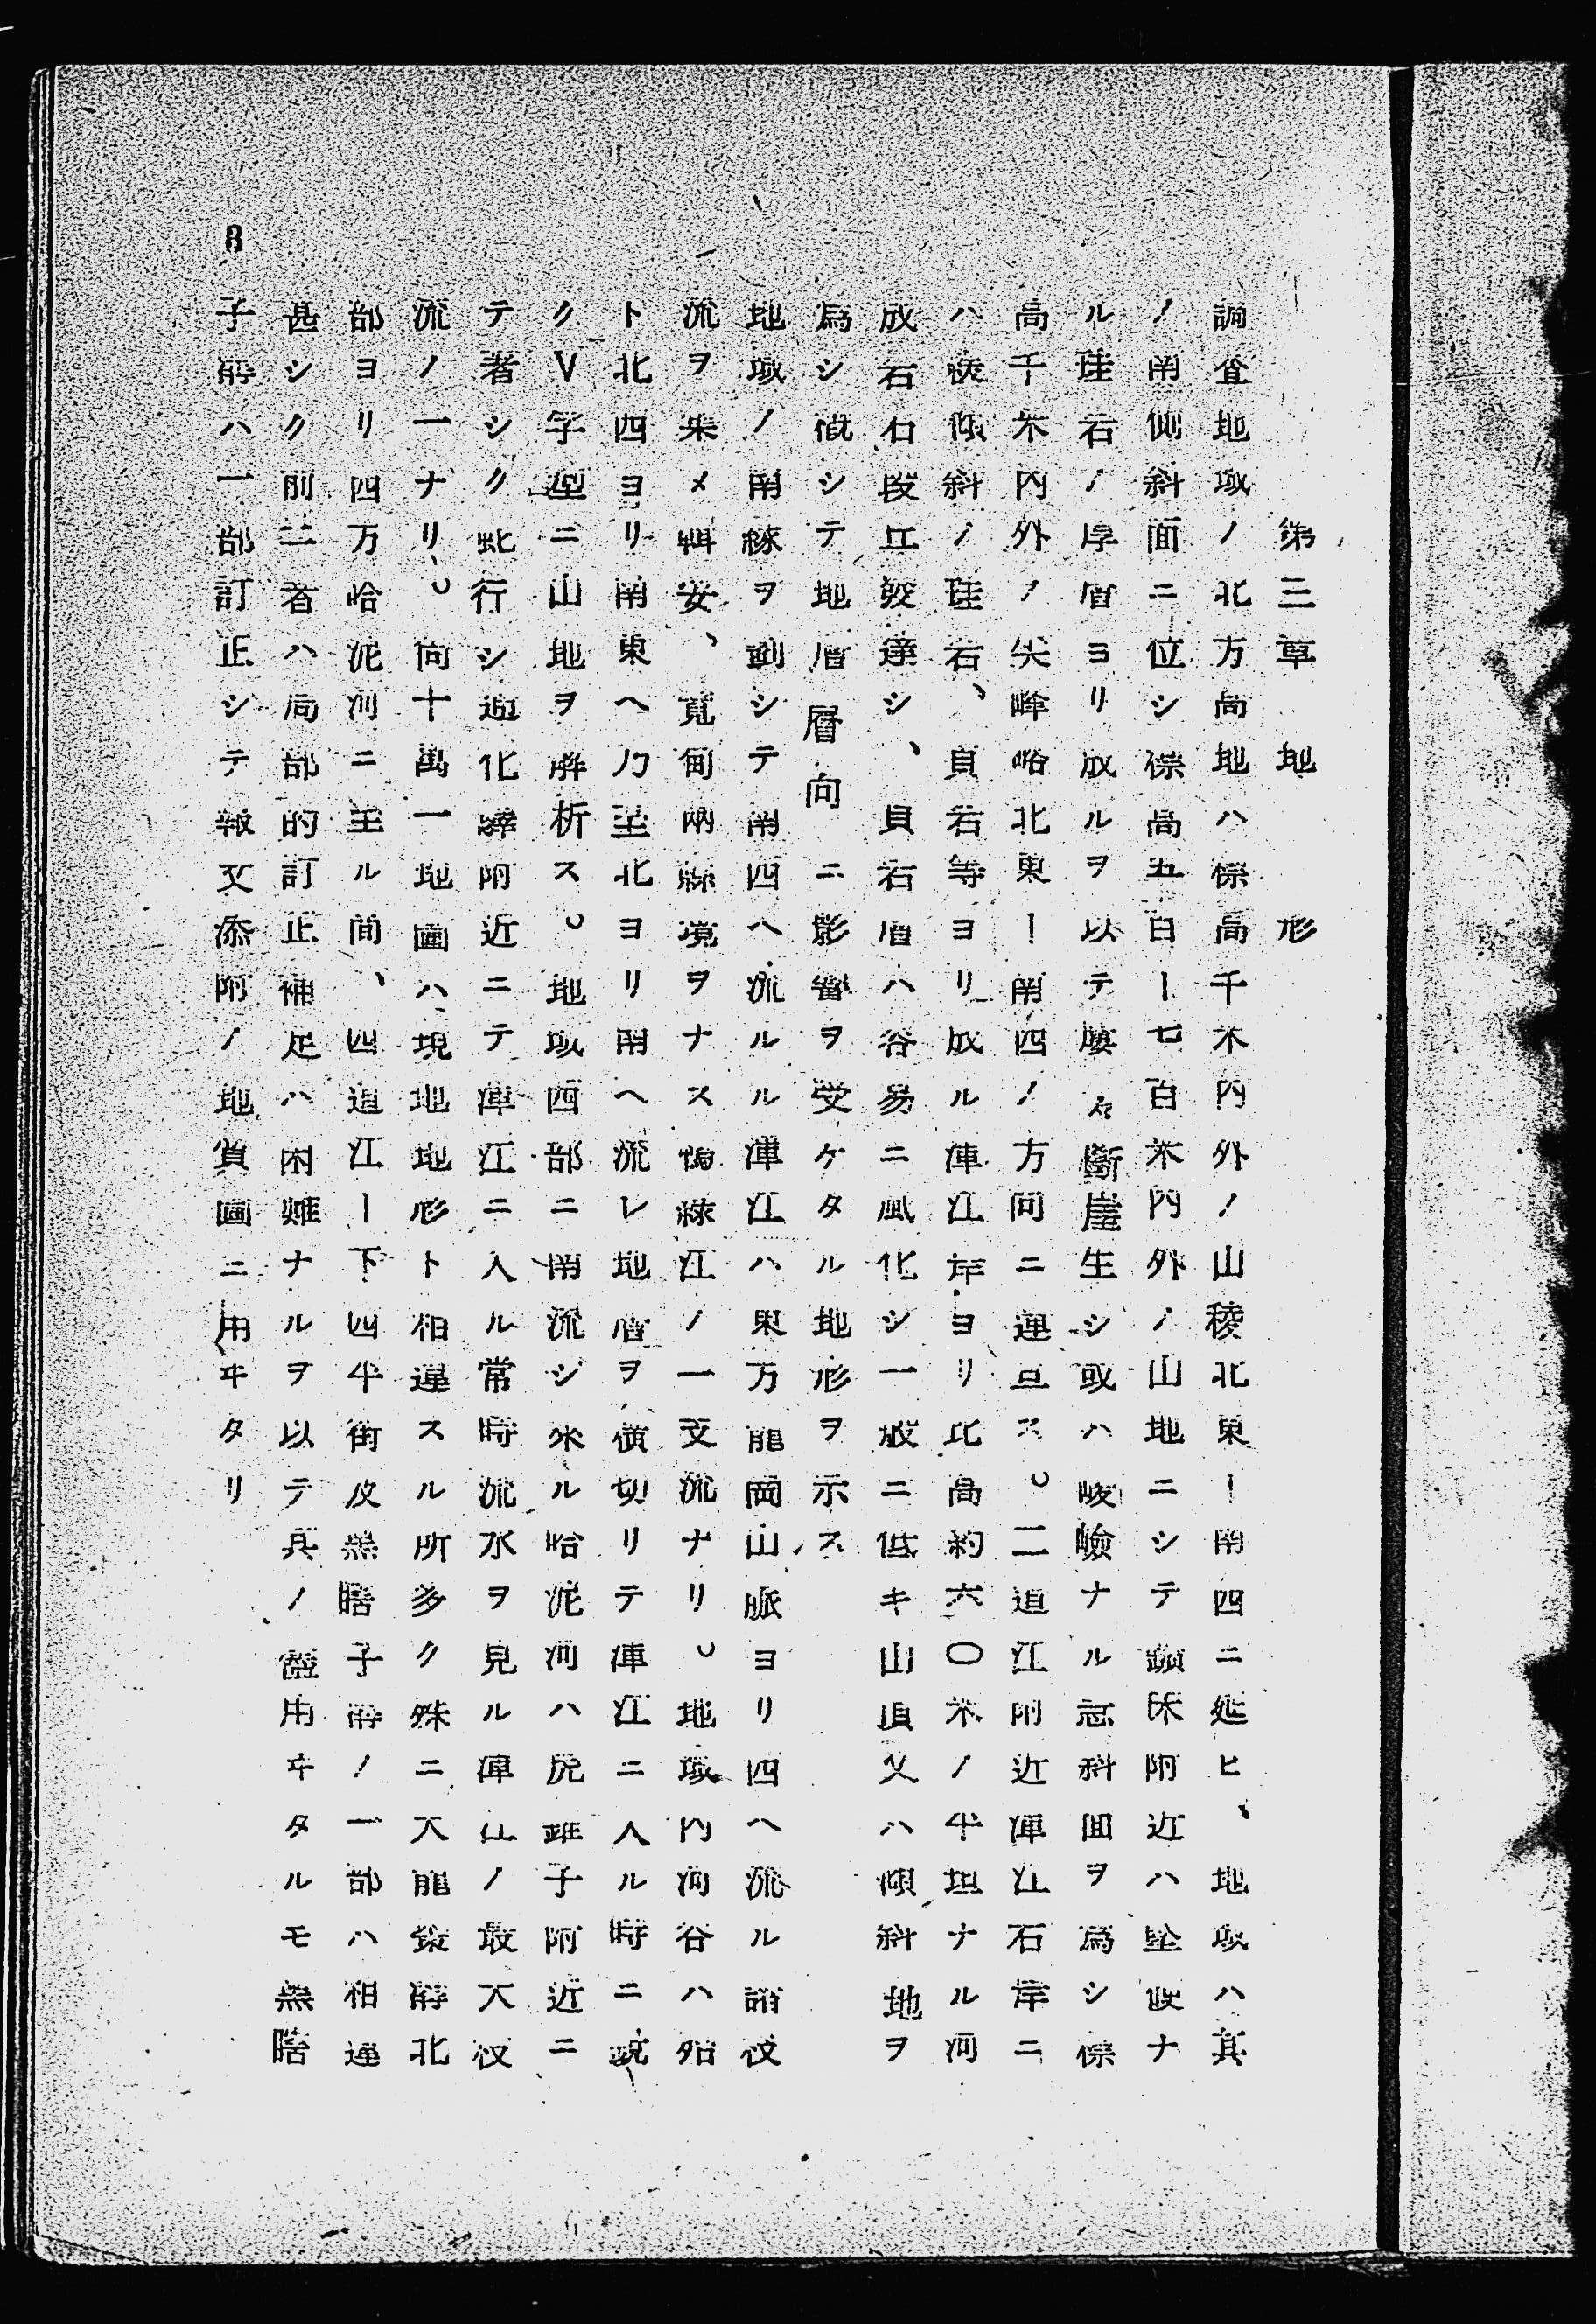 第三章　地形
調査地域ノ北方高地ハ標高千米内外ノ山稜北東ー南西ニ延ヒ、地域ハ其
ノ南側斜面ニ位シ標高五百ー七百米内外ノ山地ニシテ頭 附近ハ ナ
ル珪岩ノ厚層ヨリ成ルヲ以テ屡々斷崖生シ或ハ峻嶮ナル急斜面ヲ爲シ標
高千米内外ノ尖峰略北東ー南西ノ方向ニ連亘ス。二道江附近渾江右岸ニ
ハ緩傾斜ノ珪岩、頁岩等ヨリ成ル渾江岸ヨリ比高約六〇米ノ平坦ナル河
成石 段丘發達シ、頁岩層ハ容易ニ風化シ一般ニ低キ山頂又ハ傾斜地ヲ
爲シ概シテ地層層向ニ影響ヲ受ケタル地形ヲ示ス
地域ノ南縁ヲ劃シテ南西ヘ流ルル渾江ハ東方龍岡山脈ヨリ西ヘ流ル諸支
流ヲ集メ輯安、寬甸兩縣境ヲナス鴨綠江ノ一支流ナリ。地域内河谷ハ殆
ト北西ヨリ南東ヘ乃至北ヨリ南ヘ流レ地層ヲ橫切リテ渾江ニ入ル時ニ鋭
クV字型ニ山地ヲ解析ス。地域西部ニ南流シ來ル哈泥河ハ 子附近ニ
テ著シク蛇行シ通化驛附近ニテ渾江ニ入ル常時流水ヲ見ル渾江ノ最大支
流ノ一ナリ。尚十萬一地圖ハ現地地形ト相違スル所多ク殊ニ大龍 溝北
部ヨリ西方哈泥河ニ至ル間、四道江ー下四平街及無瞎子溝ノ一部ハ相違
甚シク前二者ハ局部的訂正補足ハ困難ナルヲ以テ其ノ儘用ヰタルモ無瞎
子溝ハ一部訂正シテ報文添附ノ地質圖ニ用ヰタリ
8